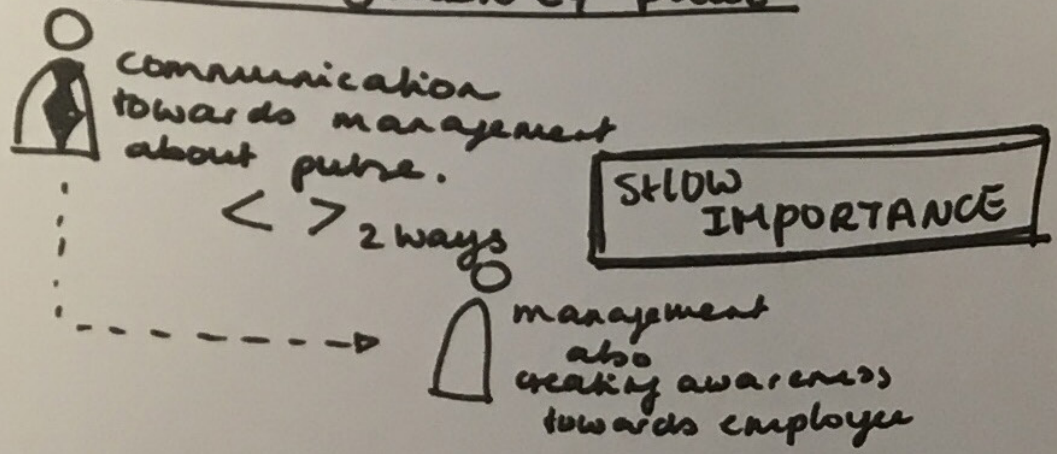 communication
towards management
about pulse.
< > 2 ways
SHOW
IMPORTANCE
management
also
creating awareness
towards employee